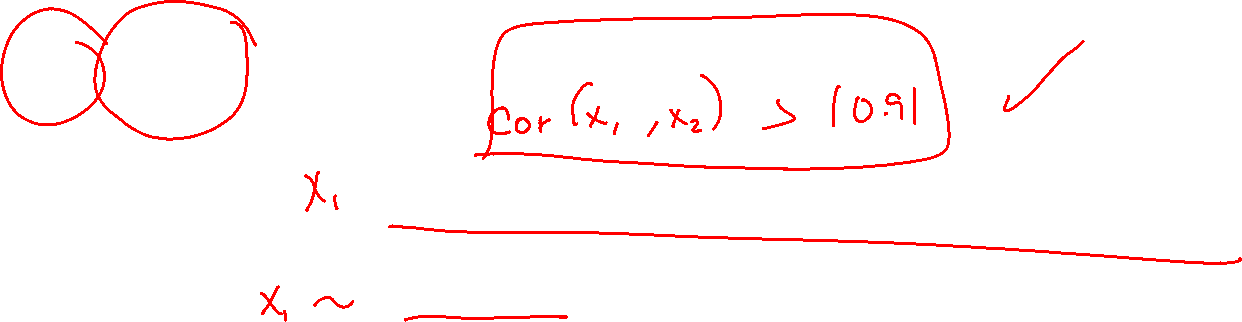 cor (x₁, x₂) > |0.9|
x₁
x₁ ~